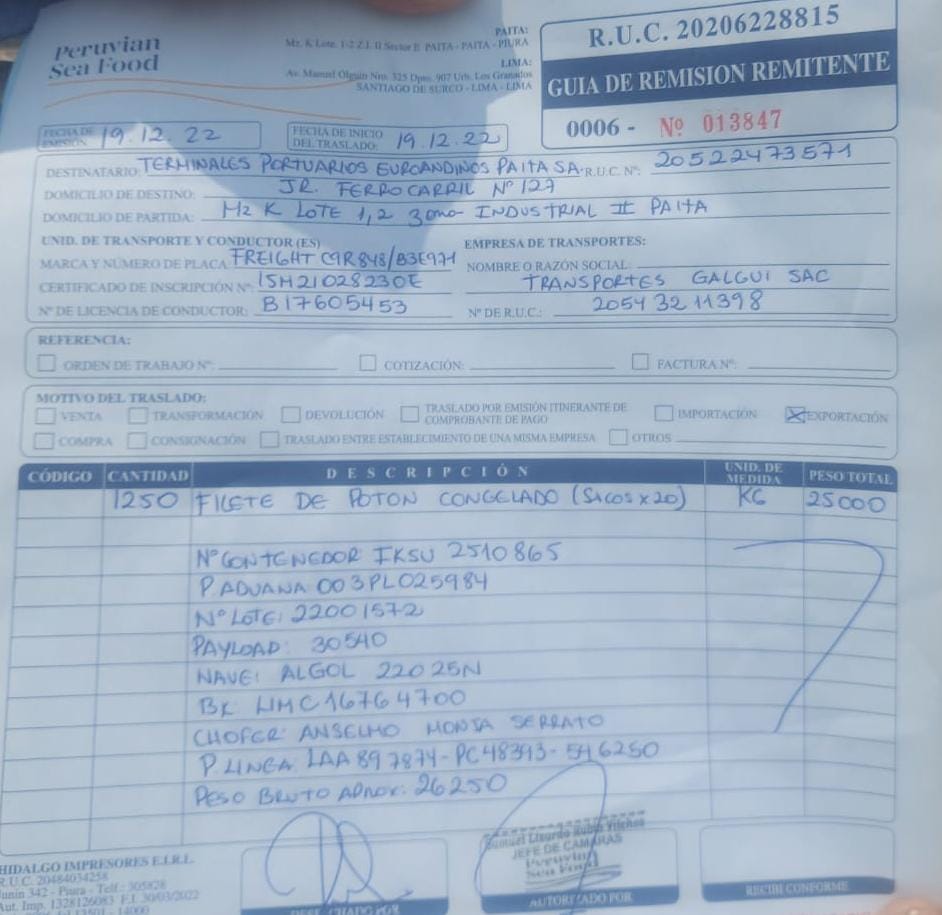 Peruvian
Sea Food
PAITA:
Mz. K Lote. 1-2 Z.I. II Sector E PAITA - PAITA - PIURA
LIMA:
Av. Manuel Olguin Nro. 325 Dpto. 907 Urb. Los Granados
SANTIAGO DE SURCO - LIMA - LIMA
R.U.C. 20206228815
GUIA DE REMISION REMITENTE
0006 - Nº 013847
FECHA DE EMISIÓN 19.12.22 FECHA DE INICIO DEL TRASLADO: 19.12.22
DESTINATARIO: TERMINALES PORTUARIOS EUROANDINOS PAITA SA. R.U.C. Nº: 20522473571
DOMICILIO DE DESTINO: JR. FERROCARRIL Nº 127
DOMICILIO DE PARTIDA: Mz K LOTE 1,2 zona INDUSTRIAL II PAITA
UNID. DE TRANSPORTE Y CONDUCTOR (ES) EMPRESA DE TRANSPORTES:
MARCA Y NÚMERO DE PLACA FREIGHT C9R848/B3E971 NOMBRE O RAZÓN SOCIAL:
CERTIFICADO DE INSCRIPCIÓN Nº: 15M21028230E TRANSPORTES GALGUI SAC
Nº DE LICENCIA DE CONDUCTOR: B17605453 Nº DE R.U.C.: 20543211398
REFERENCIA:
ORDEN DE TRABAJO Nº: COTIZACIÓN: FACTURA Nº:
MOTIVO DEL TRASLADO:
VENTA TRANSFORMACIÓN DEVOLUCIÓN TRASLADO POR EMISIÓN ITINERANTE DE COMPROBANTE DE PAGO IMPORTACIÓN EXPORTACIÓN
COMPRA CONSIGNACIÓN TRASLADO ENTRE ESTABLECIMIENTO DE UNA MISMA EMPRESA OTROS
CÓDIGO CANTIDAD DESCRIPCIÓN UNID. DE MEDIDA PESO TOTAL
1250 FILETE DE POTON CONGELADO (SACOS x 20) KG 25000
Nº CONTENEDOR IKSU 2510865
P. ADUANA 003PL025984
Nº LOTE: 22001572
PAYLOAD: 30540
NAVE: ALGOL 22025N
BK LIMC16764700
CHOFER: ANSELMO MONJA SERRATO
P. LINEA: LAA897874-PC48393-546250
PESO BRUTO APROX: 26250
HIDALGO IMPRESORES E.I.R.L.
R.U.C. 20484034258
Junin 342 - Piura - Telf.: 305828
Aut. Imp. 1328126083 F.I. 30/03/2022
JEFE DE CAMARAS
Peruvian
Sea Food
DESPACHADO POR AUTORIZADO POR RECIBI CONFORME